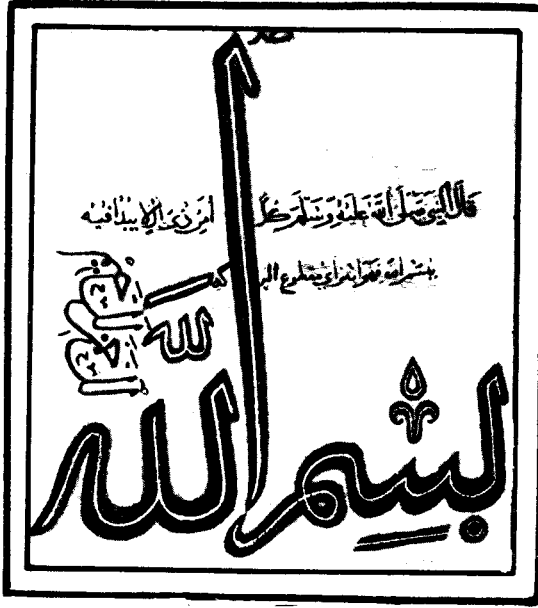 قال النبي صلى الله عليه وسلم كل امر ذي بال لا يبدا فيه
ببسم الله فهو ابتر اي مقطوع البركة
بسم الله
الرحمن الرحيم